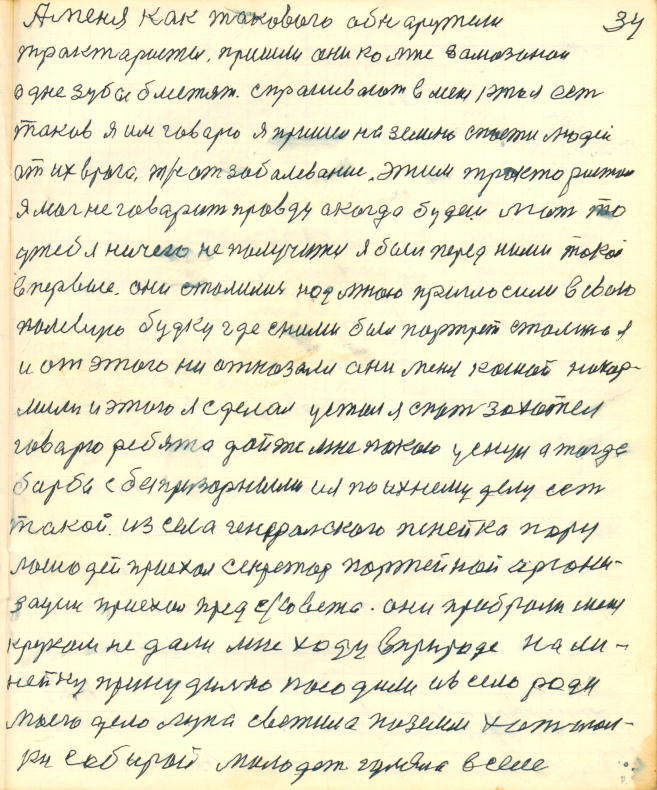 34
А меня как такового обнаружели
трактаристы, пришли они ко мне замазаные
адне зубы блистят. спрашивают в меня кто я есть
таков я им говарю я пришел на землю спасти людей
от их врага, т/к от забалевание. этим трактористам
я мог не говарит правду а когда будеш лгат то
у тебя ничего не получится я был перед ними такой
впервые. они столились надо мною пригласили в свою
полевую будку где с ними был портрет сталина я
и от этого ни отказался они меня кашой накор-
мили и этого я сделал устал я спат захотел
говарю ребята дайте мне покою уснул а тогда
барба с беспризорными и я по ихнему делу есть
такой. из села генералского пенейка пару
лошадей приехал секретар партейной аргони-
зации приехал пред с/совета. они прибрали меня
круком не дали мне ходу в природе на ли-
нейку принудилно посадили и в село ради
моего дела луна светила по земли хот игол-
ки собырай молодеж гуляла в селе